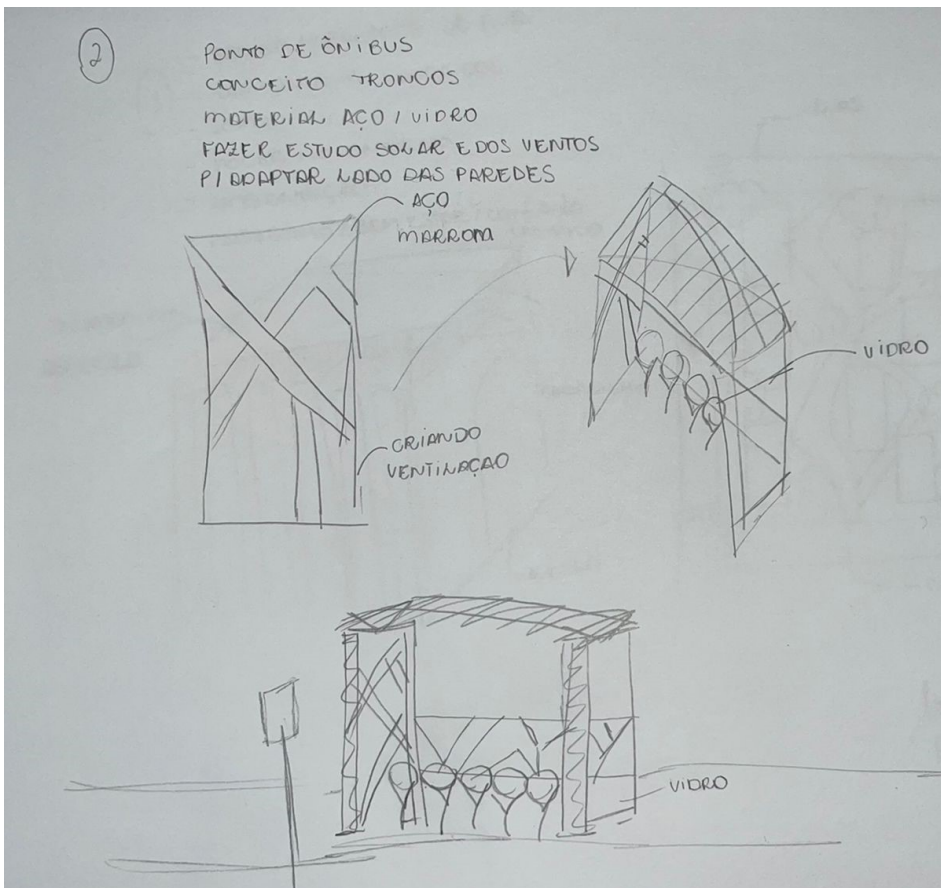 2
PONTO DE ÔNIBUS
CONCEITO TRONCOS
MATERIAL AÇO / VIDRO
FAZER ESTUDO SOLAR E DOS VENTOS
P/ ADAPTAR LADO DAS PAREDES
AÇO
MARROM
VIDRO
CRIANDO
VENTILAÇAO
VIDRO